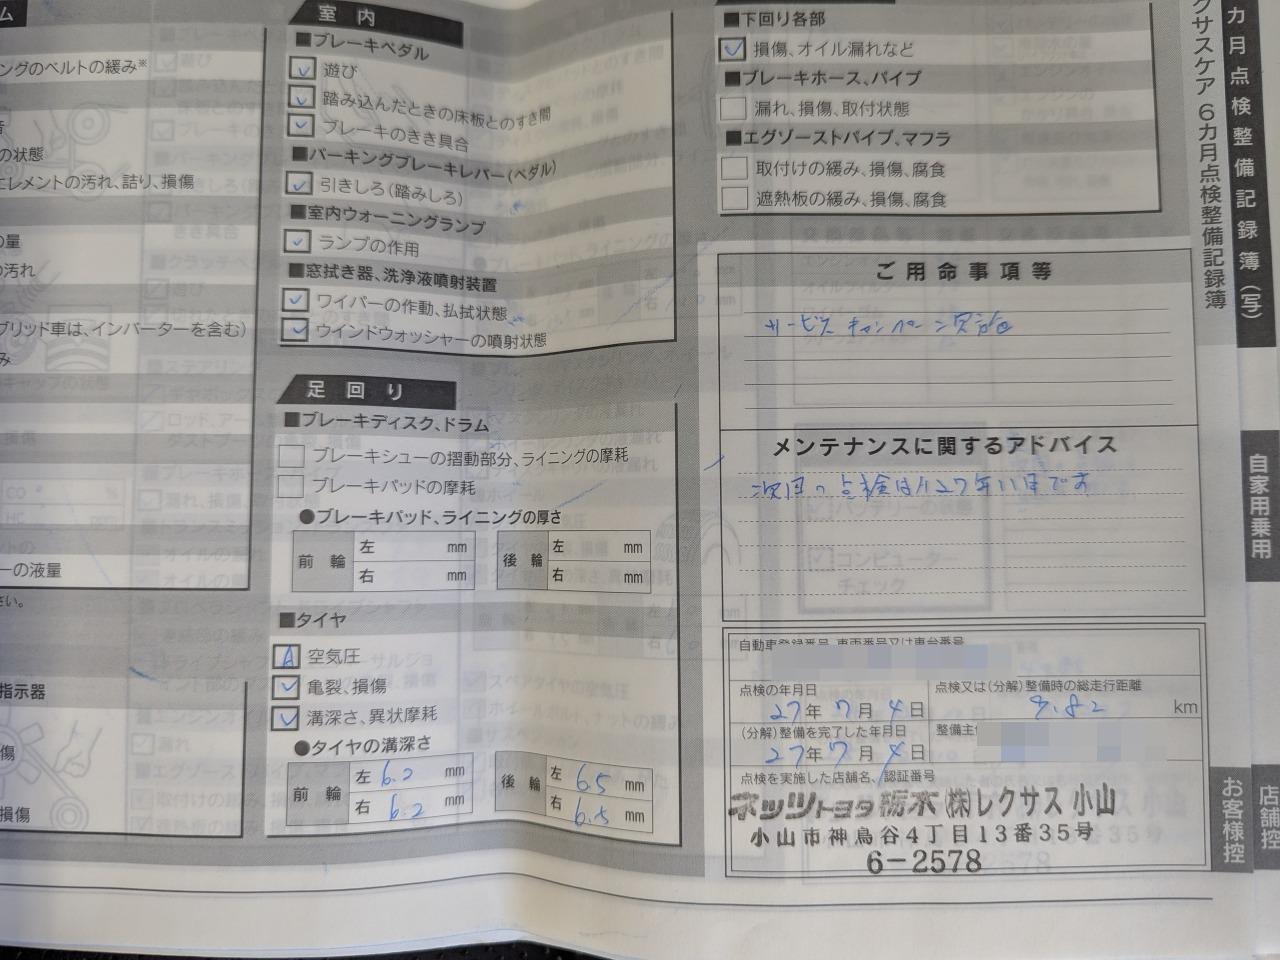 ングのベルトの緩み※
の状態
エレメントの汚れ、詰り、損傷
の量
の汚れ
ブリッド車は、インバーターを含む)
み
ーの液量
さい。
指示器
傷
損傷
室 内
■ブレーキペダル
遊び
踏み込んだときの床板とのすき間
ブレーキのきき具合
■パーキングブレーキレバー(ペダル)
引きしろ(踏みしろ)
■室内ウォーニングランプ
ランプの作用
■窓拭き器、洗浄液噴射装置
ワイパーの作動、払拭状態
ウインドウォッシャーの噴射状態
足 回 り
■ブレーキディスク、ドラム
ブレーキシューの摺動部分、ライニングの摩耗
ブレーキパッドの摩耗
●ブレーキパッド、ライニングの厚さ
前 輪 左 mm 右 mm 後 輪 左 mm 右 mm
■タイヤ
A 空気圧
亀裂、損傷
溝深さ、異状摩耗
●タイヤの溝深さ
前 輪 左 6.2 mm 右 6.2 mm 後 輪 左 6.5 mm 右 6.5 mm
■下回り各部
損傷、オイル漏れなど
■ブレーキホース、パイプ
漏れ、損傷、取付状態
■エグゾーストパイプ、マフラ
取付けの緩み、損傷、腐食
遮熱板の緩み、損傷、腐食
ご用命事項等
サービスキャンペーン実施
メンテナンスに関するアドバイス
次回の点検はH27年11月です
自動車登録番号、車両番号又は車台番号
点検の年月日
27年 7月 4日
点検又は(分解)整備時の総走行距離
km
(分解)整備を完了した年月日
27年 7月 4日
整備主
点検を実施した店舗名、認証番号
ネッツトヨタ栃木(株)レクサス小山
小山市神鳥谷4丁目13番35号
6-2578
カ月点検整備記録簿(写)
クサスケア 6カ月点検整備記録簿
自家用乗用
お客様控
店舗控